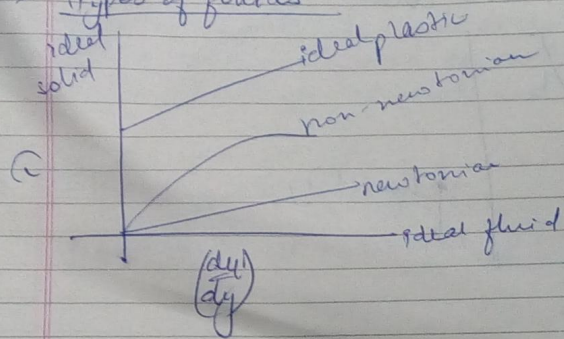 Types of fluids
ideal
solid
ideal plastic
non-newtonian
newtonian
ideal fluid
τ
(du/dy)